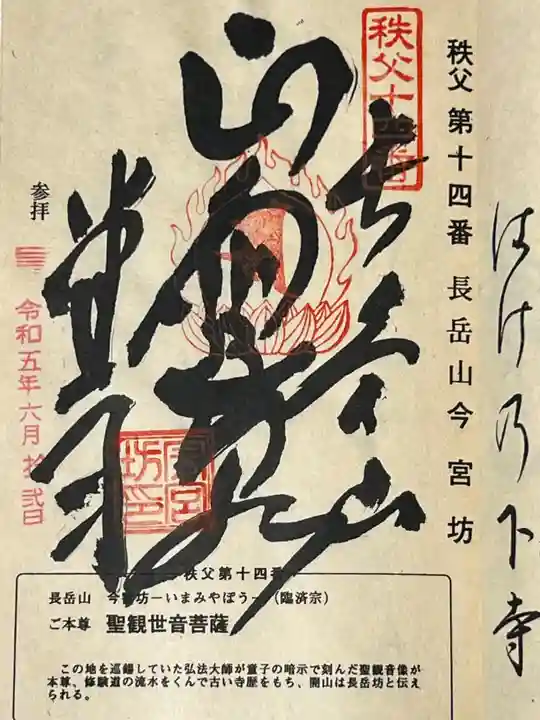 はけ乃下寺
秩父 第十四番 長岳山今宮坊
秩父十四番
長岳山
参拝
令和五年六月拾弐日
坊印
秩父第十四番
長岳山 今宮坊ーいまみやぼうー(臨済宗)
ご本尊 聖観世音菩薩
この地を巡錫していた弘法大師が童子の暗示で刻んだ聖観音像が
本尊、修験道の流水をくんで古い寺歴をもち、開山は長岳坊と伝え
られる。